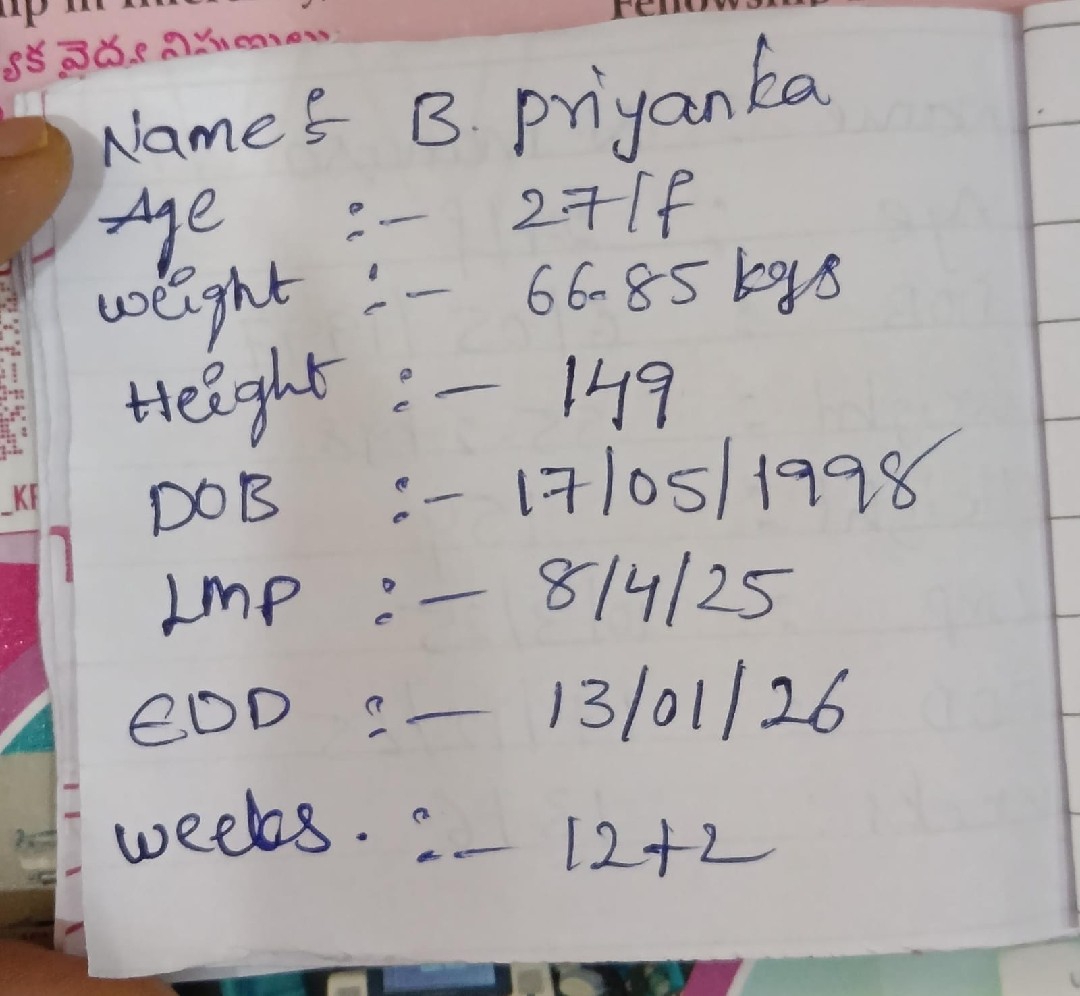 Fellowship
వైద్య నిపుణులు
Name :- B. Priyanka
Age :- 27/F
weight :- 66.85 kgs
Height :- 149
DOB :- 17/05/1998
LMP :- 8/4/25
EDD :- 13/01/26
weeks. :- 12+2